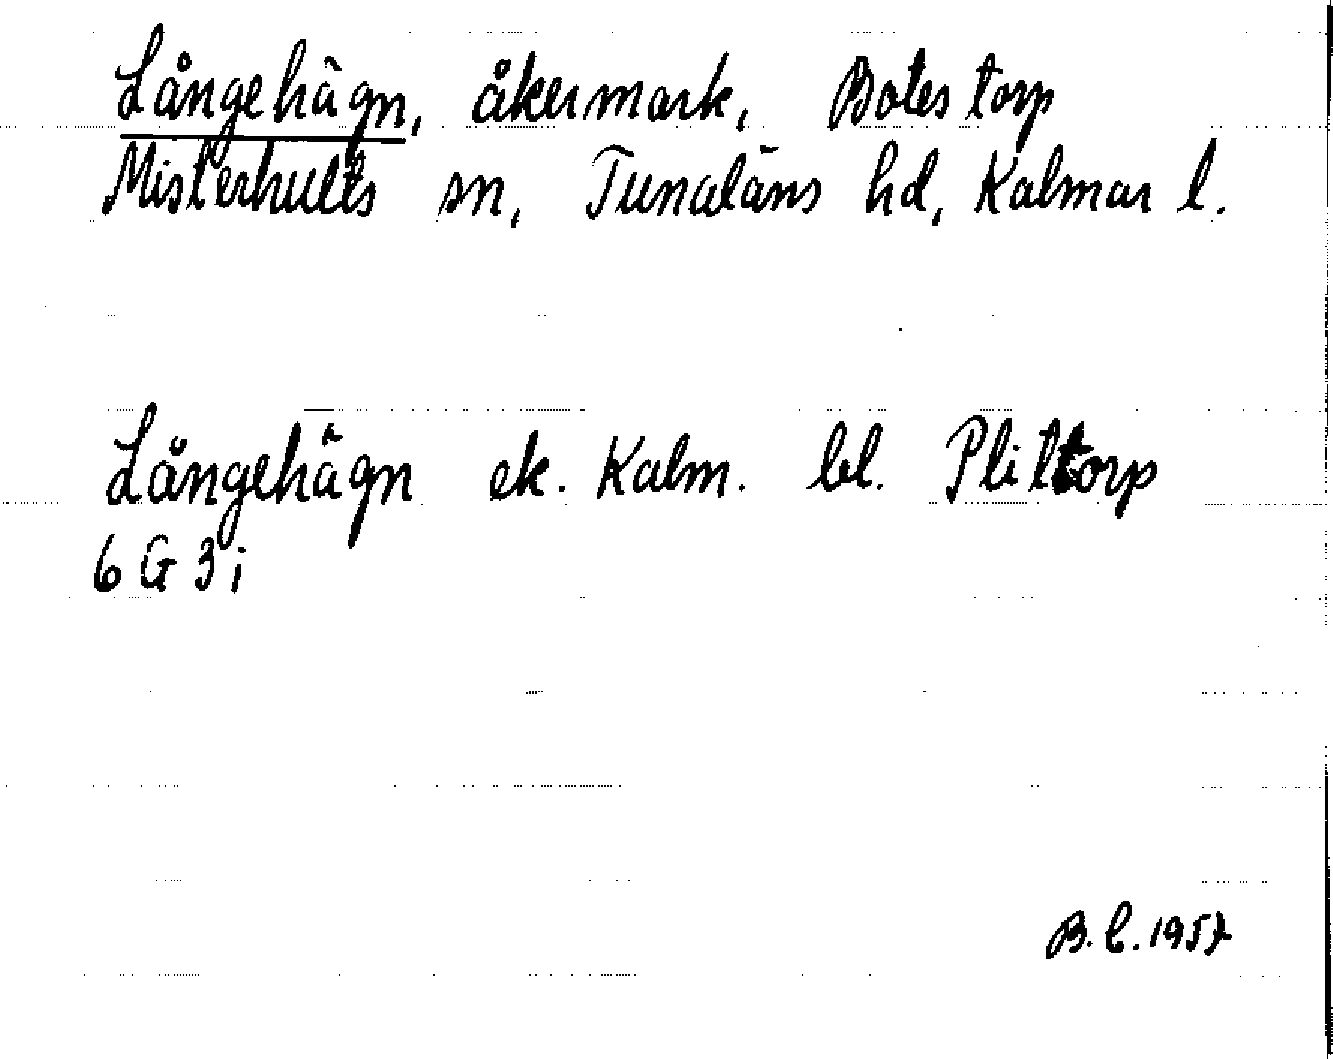 Långehägn, åkermark, Botestorp
Misterhults sn, Tunaläns hd, Kalmar l.
Långehägn ek. Kalm. bl. Plittorp
6 G 3 i
B. C. 1957